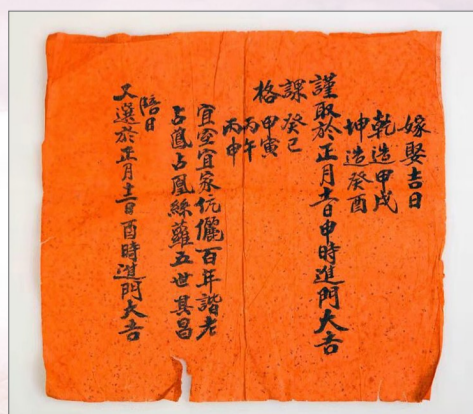 嫁娶吉日
乾造甲戌
坤造癸酉
謹取於正月十一日申時進門大吉
課 癸巳
格 甲寅
丙午
丙申
宜室宜家伉儷百年諧老
占鳳占凰絲蘿五世其昌
陪日
又選於正月十二日酉時進門大吉